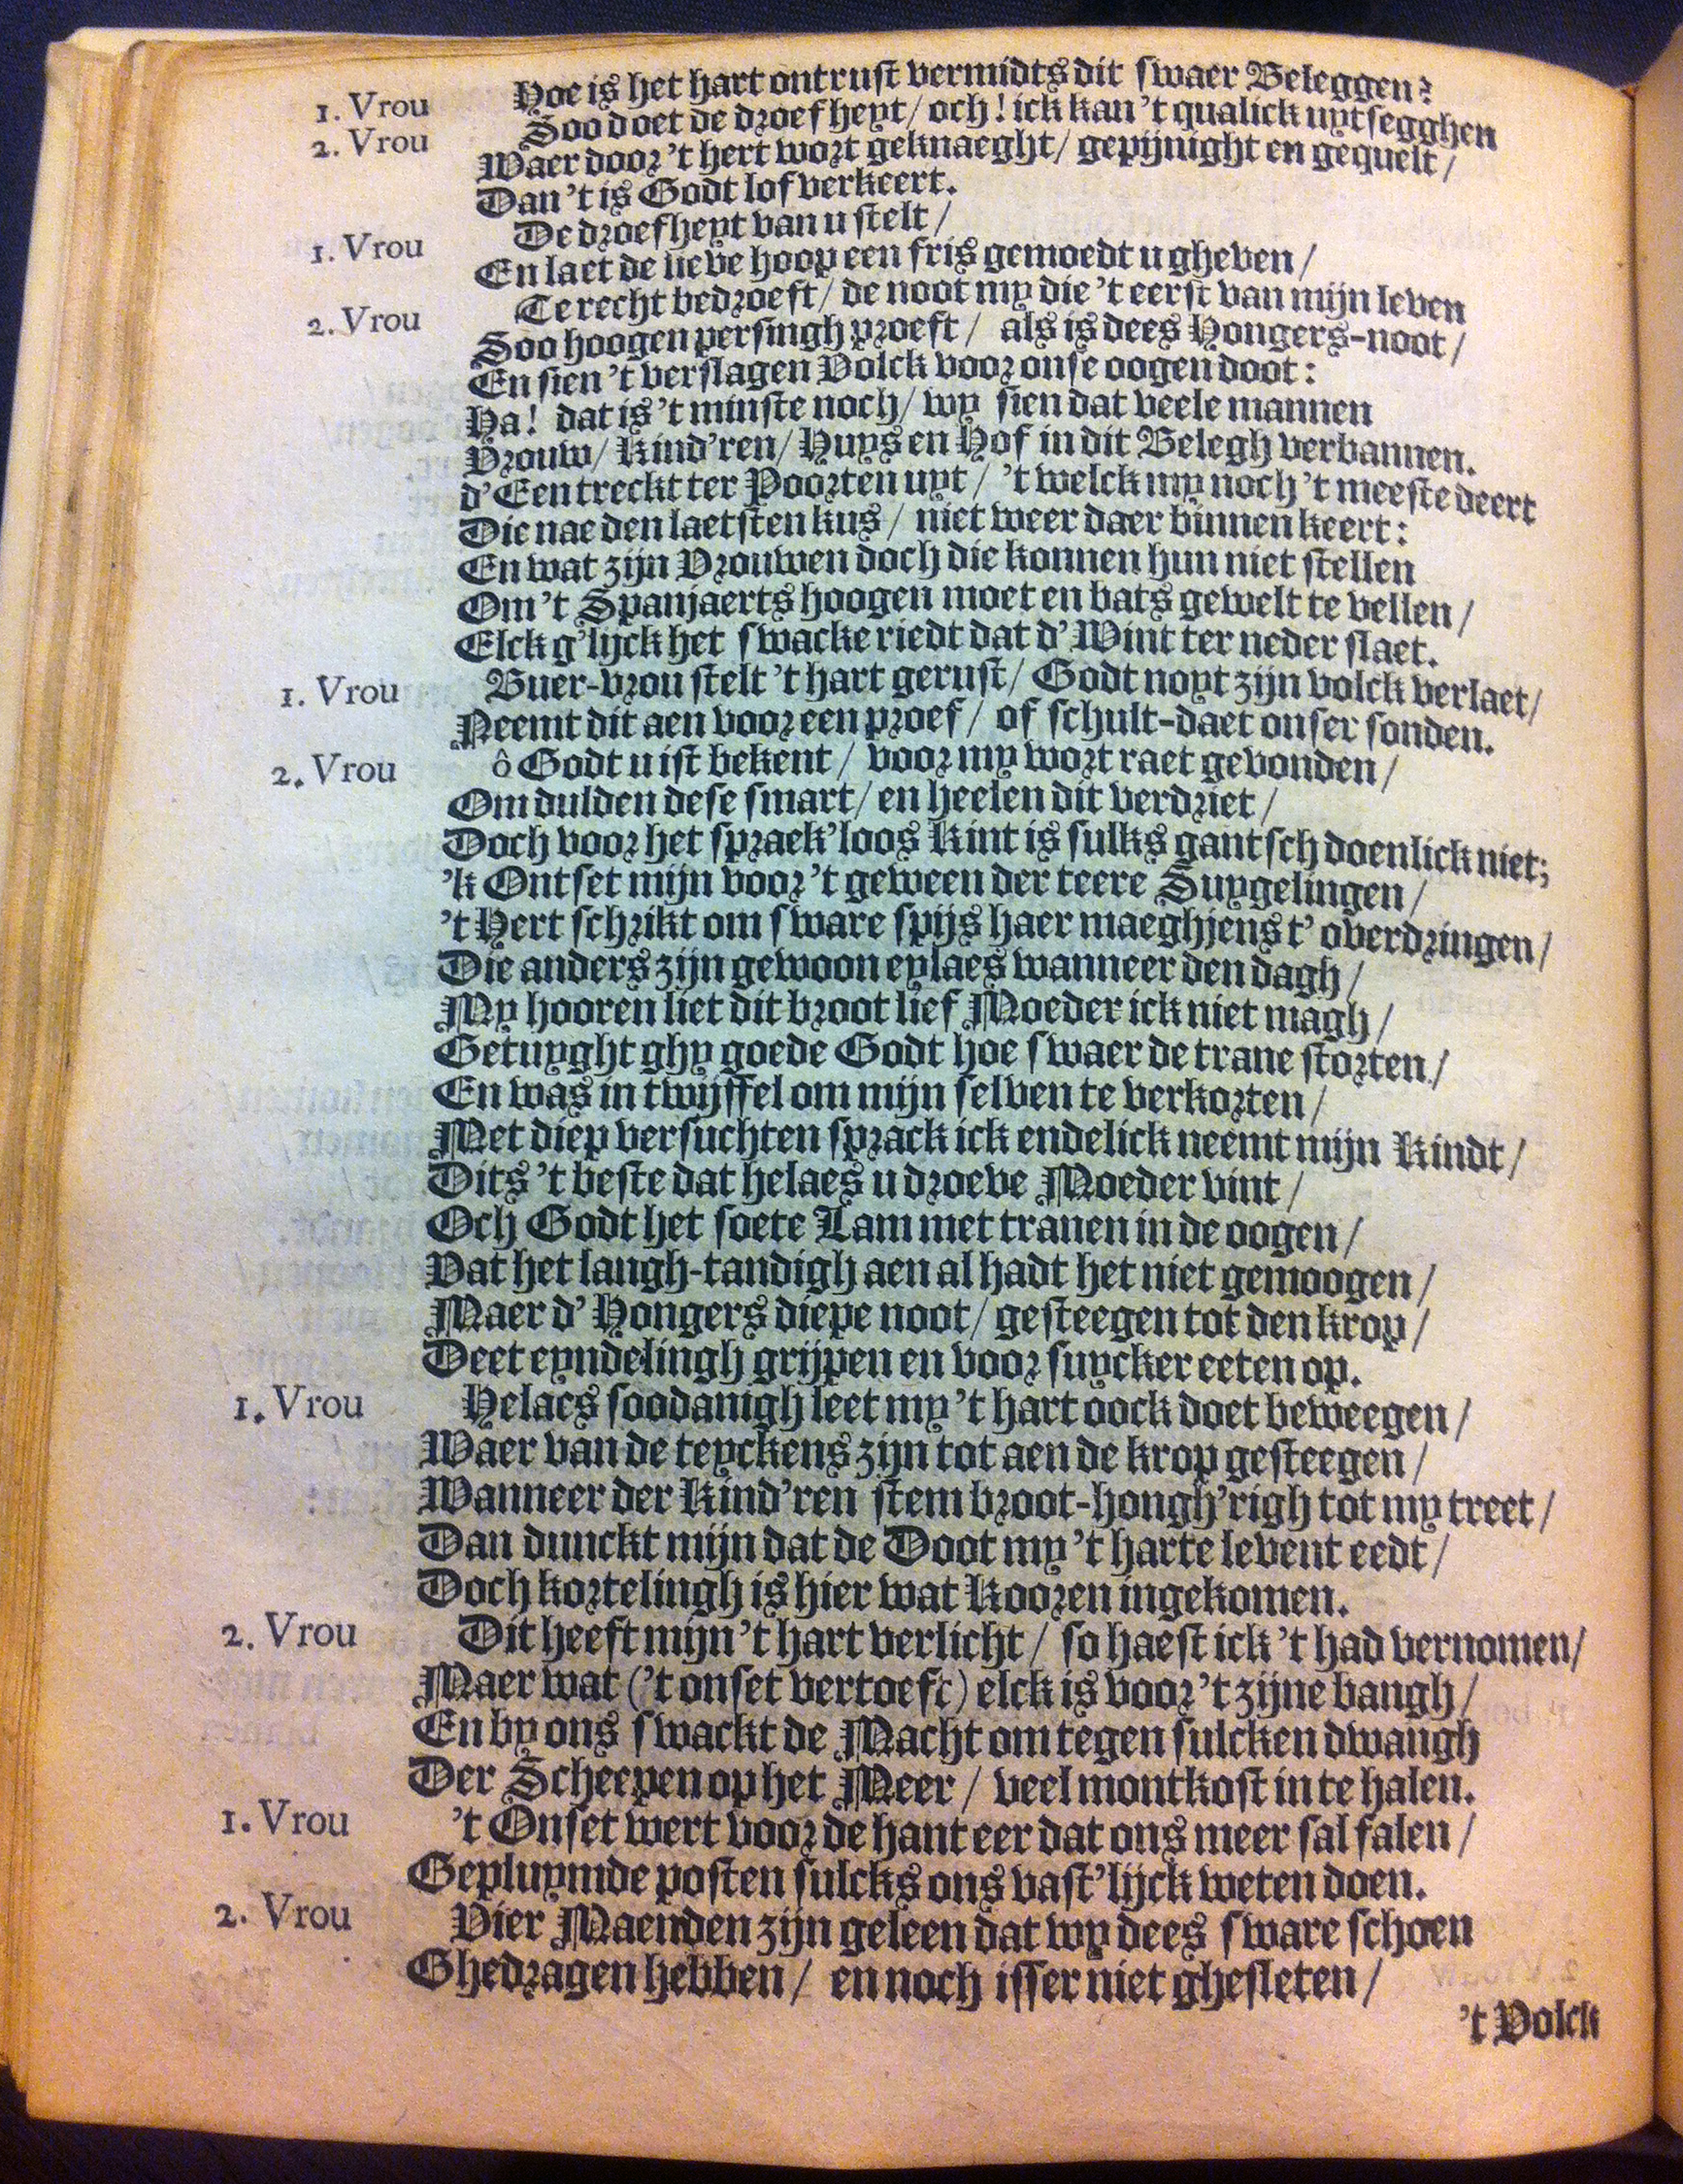 1. Vrou Hoe is het hart ontrust vermidts dit swaer Beleggen?
2. Vrou Soo doet de droefheyt/ och! ick kan 't qualick uytsegghen
Waer door 't hert wort geknaeght/ gepijnight en gequelt/
Dan 't is Godt lof verkeert.
1. Vrou De droefheyt van u stelt/
En laet de lieve hoop een fris gemoedt u gheven/
2. Vrou Te recht bedroeft/ de noot my die 't eerst van mijn leven
Soo hoogen persingh proeft/ als is dees Hongers-noot/
En sien 't verslagen Volck voor onse oogen doot:
Ha! dat is 't minste noch/ wy sien dat veele mannen
Vrouw/ Kind'ren/ Huys en Hof in dit Belegh verbannen.
d'Een treckt ter Poorten uyt/ 't welck my noch 't meeste deert
Die nae den laetsten kus/ niet weer daer binnen keert:
En wat zijn Vrouwen doch die konnen hun niet stellen
Om 't Spanjaerts hoogen moet en bats gewelt te vellen/
Elck g'lijck het swacke riedt dat d'Wint ter neder slaet.
1. Vrou Buer-vrou stelt 't hart gerust/ Godt noyt zijn volck verlaet/
Neemt dit aen voor een proef/ of schult-daet onser sonden.
2. Vrou ô Godt u ist bekent/ voor my wort raet gevonden/
Om dulden dese smart/ en heelen dit verdriet/
Doch voor het spraek'loos Kint is sulks gantsch doenlick niet;
'k Ontset mijn voor 't geween der teere Suygelingen/
't Hert schrikt om sware spijs haer maeghjens t'overdringen/
Die anders zijn gewoon eylaes wanneer den dagh/
My hooren liet dit broot lief Moeder ick niet magh/
Getuyght ghy goede Godt hoe swaer de trane storten/
En was in twijffel om mijn selven te verkorten/
Met diep versuchten sprack ick endelick neemt mijn Kindt/
Dits 't beste dat helaes u droeve Moeder vint/
Och Godt het soete Lam met tranen in de oogen/
Vat het langh-tandigh aen al hadt het niet gemoogen/
Maer d'Hongers diepe noot/ gesteegen tot den krop/
Deet eyndelingh grijpen en voor suycker eeten op.
1. Vrou Helaes soodanigh leet my 't hart oock doet beweegen/
Waer van de teyckens zijn tot aen de krop gesteegen/
Wanneer der Kind'ren stem broot-hongh'righ tot my treet/
Dan dunckt mijn dat de Doot my 't harte levent eedt/
Doch kortelingh is hier wat Kooren ingekomen.
2. Vrou Dit heeft mijn 't hart verlicht/ so haest ick 't had vernomen/
Maer wat ('t onset vertoeft) elck is voor 't zijne bangh/
En by ons swackt de Macht om tegen sulcken dwangh
Der Scheepen op het Meer/ veel montkost in te halen.
1. Vrou 't Onset wert voor de hant eer dat ons meer sal falen/
Gepluymde posten sulcks ons vast'lijck weten doen.
2. Vrou Vier Maenden zijn geleen dat wy dees sware schoen
Ghedragen hebben/ en noch isser niet ghesleten/
't Volck